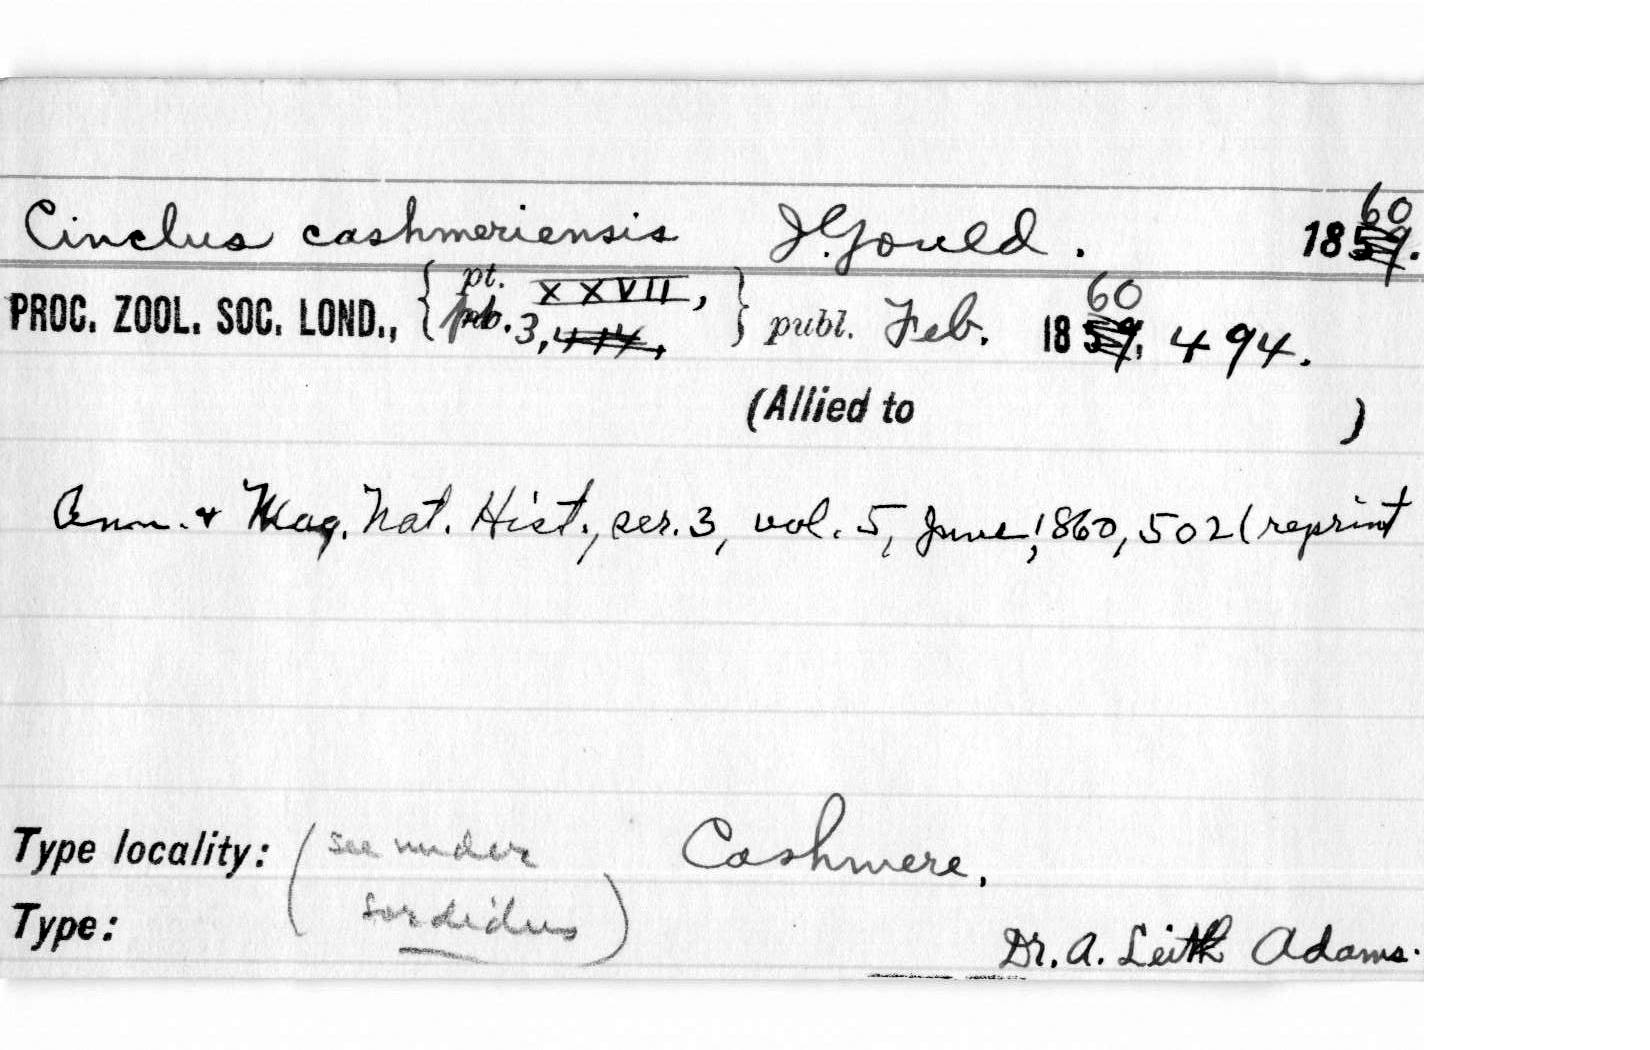 Cinclus cashmeriensis J. Gould. 1860.
PROC. ZOOL. SOC. LOND., { pt. XXVII, } publ. Feb. 1860 494.
3,
(Allied to )
Ann. & Mag. Nat. Hist., ser. 3, vol. 5, June, 1860, 502 (reprint
Type locality: (see under Cashmere.
sordidus)
Type:
Dr. A. Leith Adams.